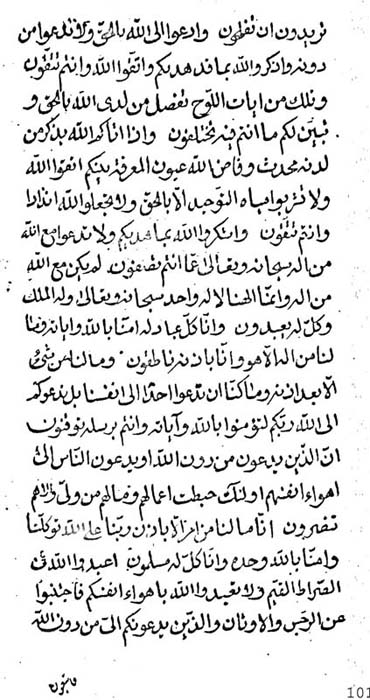 تريدون ان تفلحون وادعوا الى الله بالحق ولا تدعوا من
دونه واذكروا لله بما قد هديكم واتقوا الله وانتم تتقون
وتلك من ايات اللوح تفصل من لدى الله بالحق و
تبين لكم ما انتم فيه تختلفون واذا اتاكم الله بذكر من
لدنه محدث وفاض الله عيون المعرفة بينكم اتقوا الله
ولا تشربوا مياه التوحيد الا بالحق ولا تجعلوا لله اندادا
وانتم تتقون واشكروا لله بما هديكم ولا تدعوا مع الله
من اله سبحانه وتعالى عما انتم تصفون لم يكن مع الله
من اله وانما الهنا اله واحد سبحانه وتعالى وله الملك
وكل له يعبدون وانا كل عباد له امنا بالله واياته وما
لنا من اله الا هو وانا باذنه ناطقون وما لنا من شئ
الا بعد اذنه وما كنا ان ندعوا احدا الى انفسنا بل ندعوكم
الى الله ربكم لتؤمنوا بالله وآياته وانتم برسله توقنون
ان الذين يدعون من دون الله او يدعون الناس الى
اهواء انفسهم اولئك حبطت اعمالهم وما لهم من ولي ولا هم
تنصرون انا ما لنا من امر الا باذن ربنا على الله توكلنا
وامنا بالله وحده وانا كل له مسلمون اعبدوا الله في
الصراط القيم ولا تعبدوا الله باهواء انفسكم فاجتنبوا
عن الرجس والاوثان والذين يدعونكم الى من دون الله
101